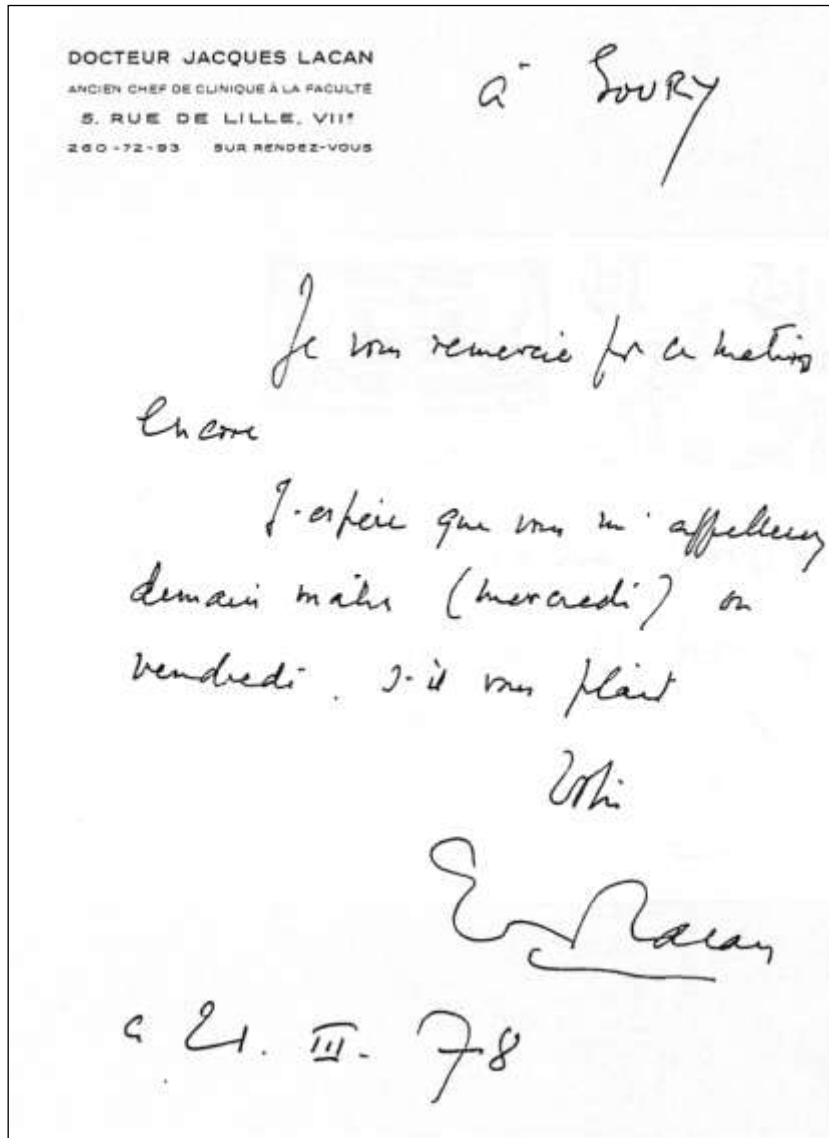 DOCTEUR JACQUES LACAN
ANCIEN CHEF DE CLINIQUE À LA FACULTÉ
5, RUE DE LILLE, VIIe
260-72-93 SUR RENDEZ-VOUS
à SOURY
Je vous remercie pour ce matin
encore
J'espère que vous m'appellerez
demain matin (mercredi) ou
vendredi. s'il vous plait
Votre
Lacan
ce 21. III. 78